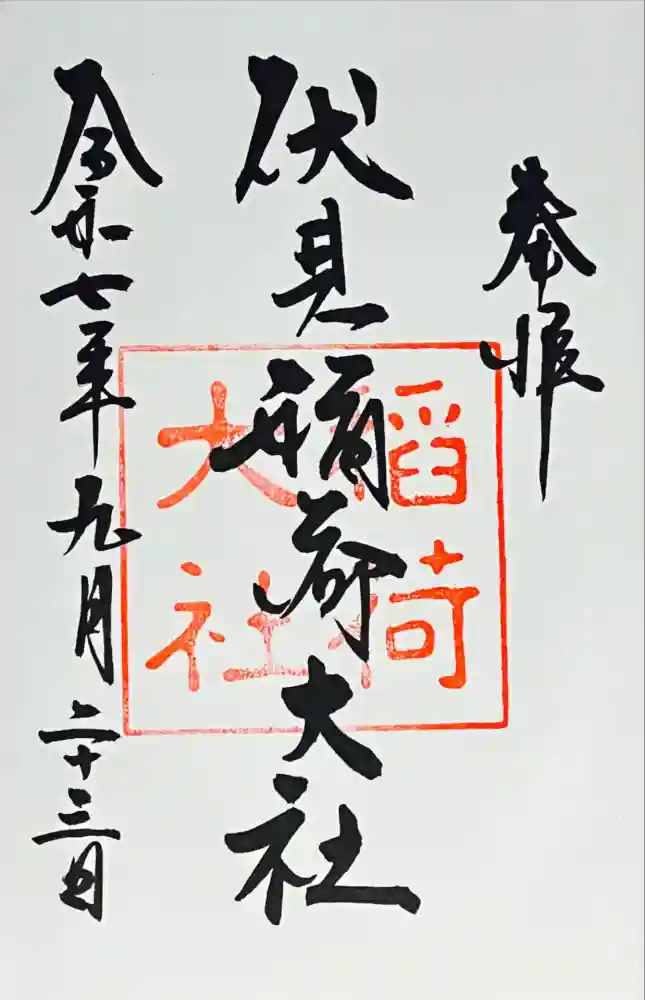 奉拝
伏見稲荷大社
令和七年九月二十三日
稲荷
大社